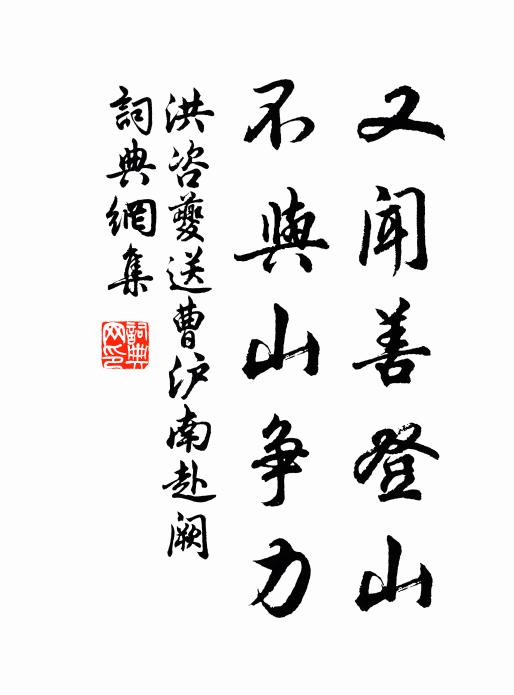 又聞善登山
不與山争力
洪咨夔送曹沪南赴阙
詞典網集
詞典網印